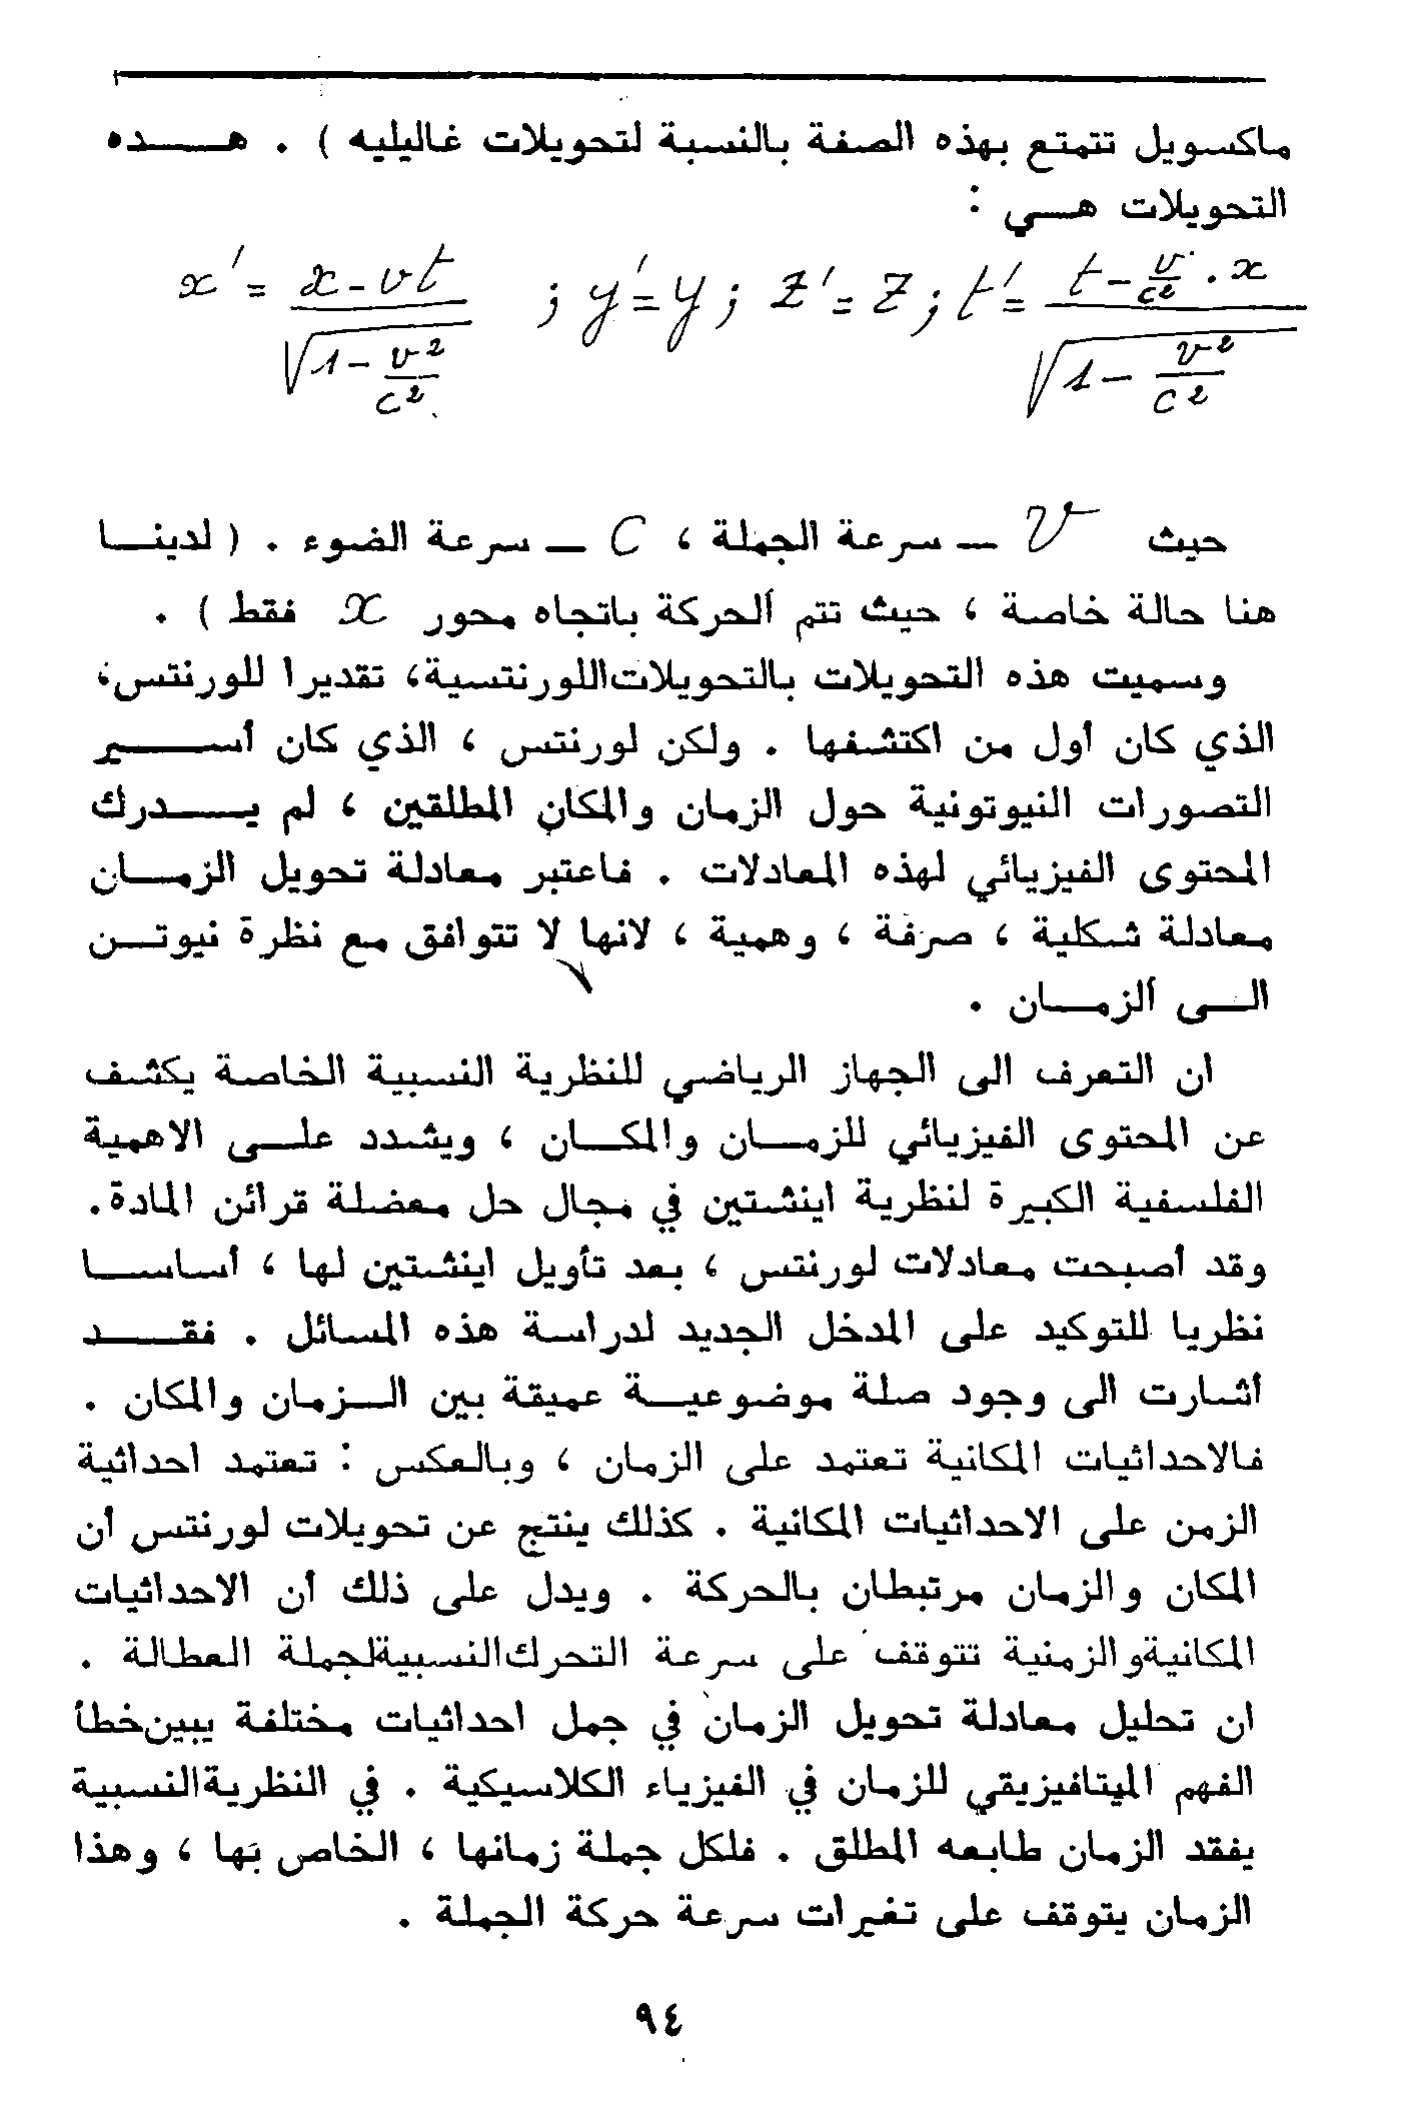 ماكسويل تتمتع بهذه الصفة بالنسبة لتحويلات غاليليه ) . هـــذه
التحويلات هــي :
x' = (x - vt) / √(1 - v²/c²) ; y' = y ; z' = z ; t' = (t - v/c² . x) / √(1 - v²/c²)
حيث v — سرعة الجملة ، C — سرعة الضوء . ( لدينــا
هنا حالة خاصة ، حيث تتم الحركة باتجاه محور x فقط ) .
وسميت هذه التحويلات بالتحويلات اللورنتسية، تقديرا للورنتس،
الذي كان أول من اكتشفها . ولكن لورنتس ، الذي كان أســـير
التصورات النيوتونية حول الزمان والمكان المطلقين ، لم يـــدرك
المحتوى الفيزيائي لهذه المعادلات . فاعتبر معادلة تحويل الزمــان
معادلة شكلية ، صرفة ، وهمية ، لانها لا تتوافق مع نظرة نيوتــن
الــى الزمــان .
ان التعرف الى الجهاز الرياضي للنظرية النسبية الخاصة يكشف
عن المحتوى الفيزيائي للزمــان والمكــان ، ويشدد علــى الاهمية
الفلسفية الكبيرة لنظرية اينشتين في مجال حل معضلة قرائن المادة.
وقد أصبحت معادلات لورنتس ، بعد تأويل اينشتين لها ، أساســا
نظريا للتوكيد على المدخل الجديد لدراسة هذه المسائل . فقـــد
أشارت الى وجود صلة موضوعيــة عميقة بين الــزمان والمكان .
فالاحداثيات المكانية تعتمد على الزمان ، وبالعكس : تعتمد احداثية
الزمن على الاحداثيات المكانية . كذلك ينتج عن تحويلات لورنتس أن
المكان والزمان مرتبطان بالحركة . ويدل على ذلك أن الاحداثيات
المكانية والزمنية تتوقف على سرعة التحرك النسبية لجملة العطالة .
ان تحليل معادلة تحويل الزمان في جمل احداثيات مختلفة يبين خطأ
الفهم الميتافيزيقي للزمان في الفيزياء الكلاسيكية . في النظرية النسبية
يفقد الزمان طابعه المطلق . فلكل جملة زمانها ، الخاص بها ، وهذا
الزمان يتوقف على تغيرات سرعة حركة الجملة .
٩٤